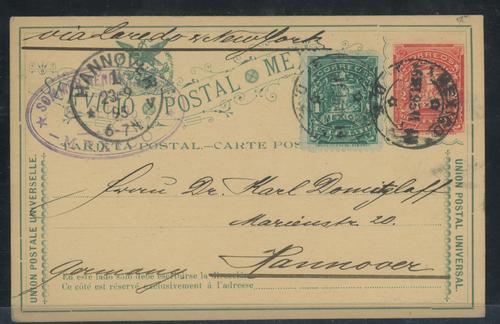 via Laredo & New York
SERVICIO POSTAL MEXICANO
TARJETA POSTAL.—CARTE POSTALE
HANNOVER
1
23 9
95
6-7N
V
CORREOS
MEXICO
CORREOS
MEXICO
Herrn Dr. Karl Domitzlaff
Marienstr 20.
Hannover
Germany
UNION POSTALE UNIVERSELLE.
UNION POSTAL UNIVERSAL.
En este lado sólo debe escribirse la dirección
Ce côté est réservé exclusivement à l'adresse